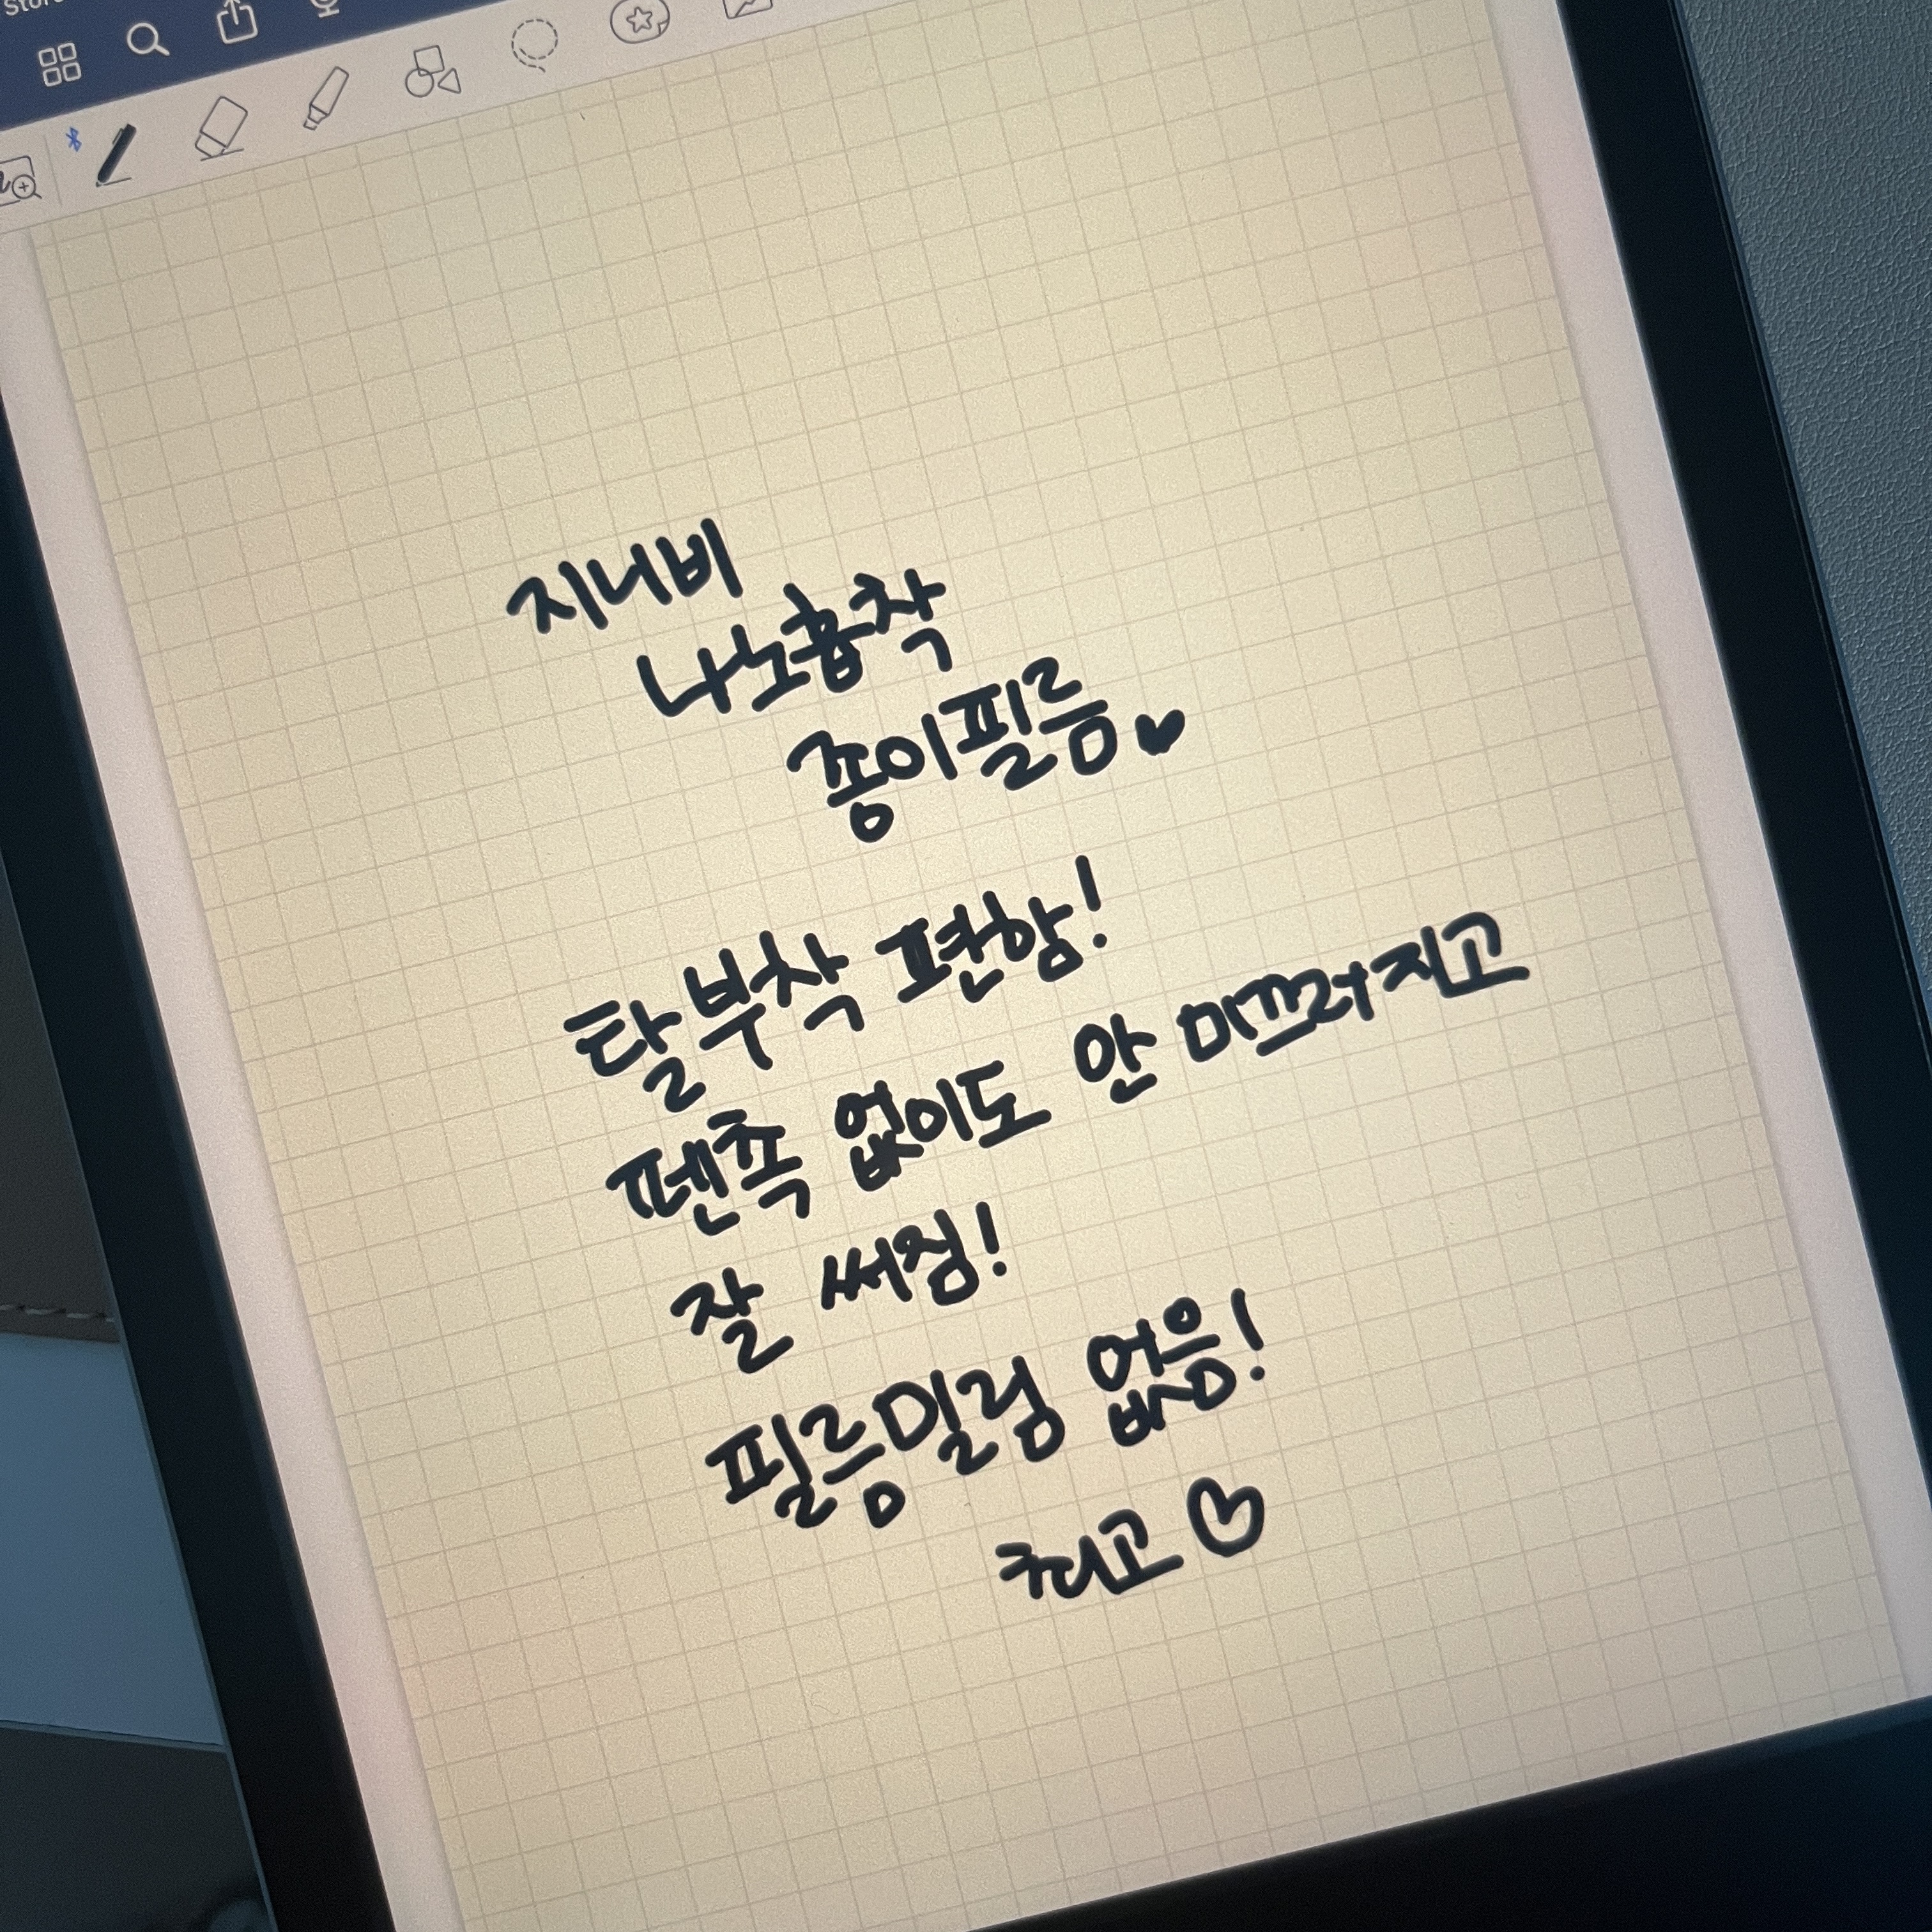 지니비
나노흡착
종이필름♥
탈부착 편함!
펜촉 없이도 안 미끄러지고
잘 써짐!
필름밀림 없음!
최고♡